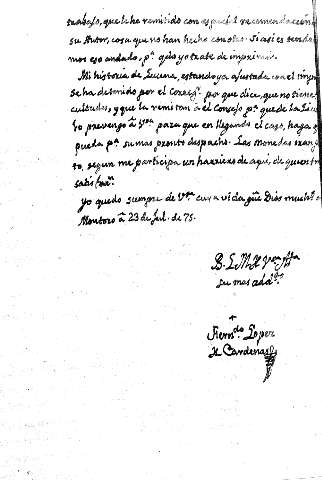 trabajo, que le ha remitido con aquel recomendacion
su Autor, cosa que no han hecho con otro. Si asi es tenda
mos eso andado, pª qdo yo trate de imprimir.
Mi historia de Lucena, estando ya ajustada con el impr
se ha detenido por el Corregr. por que dice, que no tiene
cultades, y que la remitan á el Consejo pª que dé la Lice
lo prevengo á Vmd para que en llegando el caso, haga q
pueda pª su mas pronto despacho. Las monedas
to, segun me participa un harriero de aqui, de que
satisfn.
Yo quedo siempre de Vmd cuya vida gue Dios muchs a
Montoro á 23 de Jul. de 75.
B. L. M. de
su mas
Ferndo. Lopez
de Cardenas